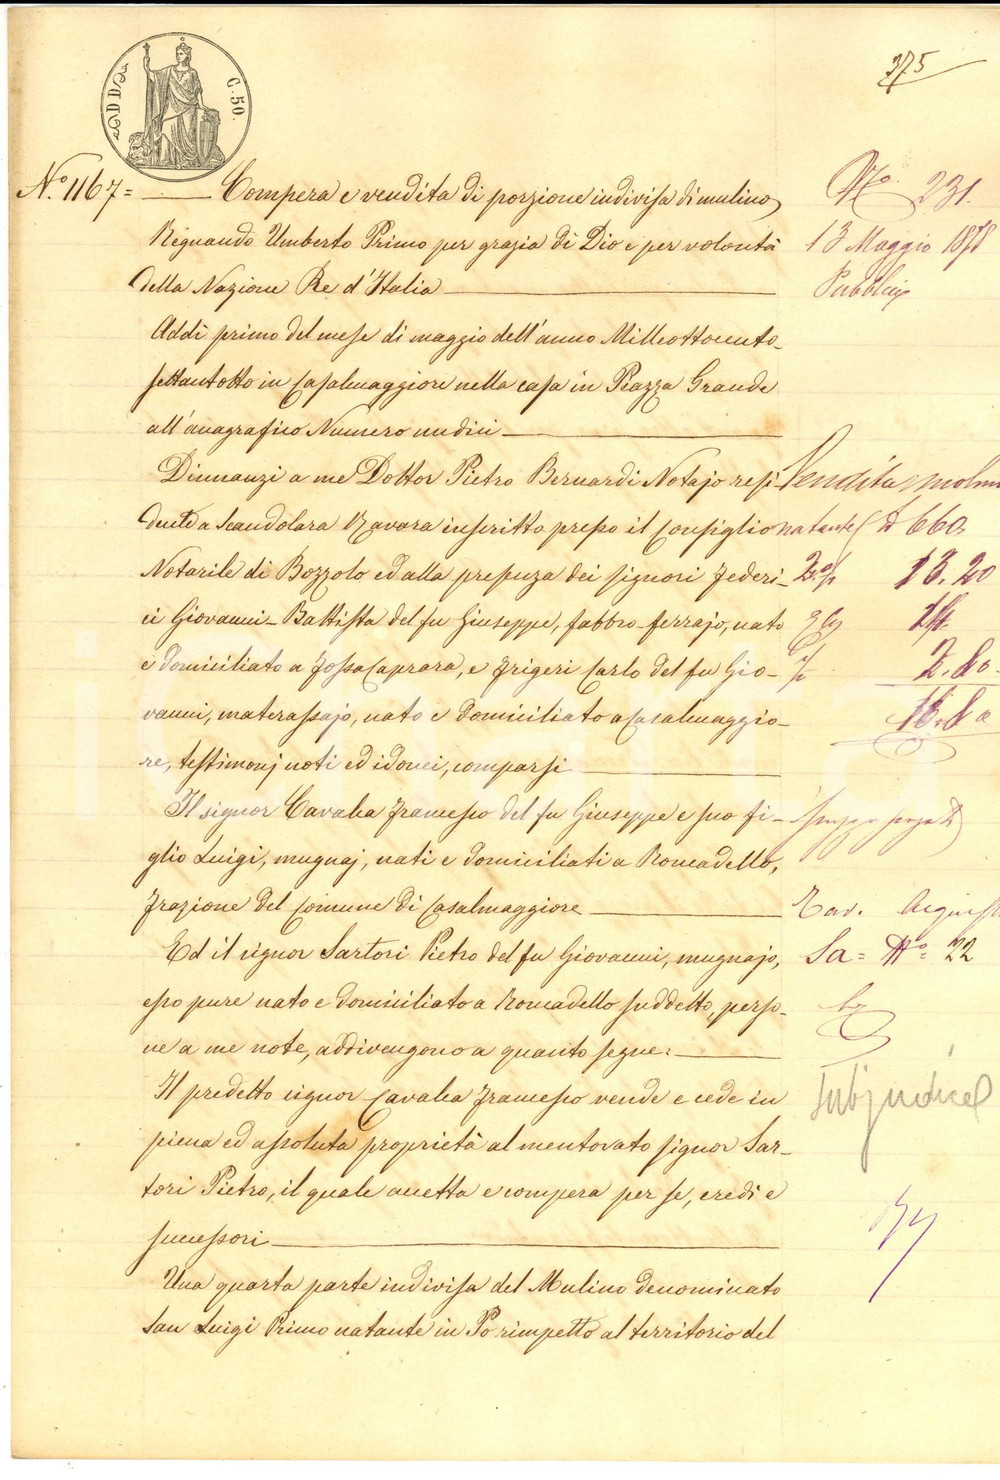 375
C. 50.
N.º 1167 = Compera e vendita di porzione indivisa di mulino
Regnando Umberto Primo per grazia di Dio e per volontà
della Nazione Re d'Italia
Addì primo del mese di maggio dell'anno Milleottocento-
settantotto in Casalmaggiore nella casa in Piazza Grande
all'anagrafico Numero undici
Dinnanzi a me Dottor Pietro Bernardi Notajo resi-
dente a Scandolara Ravara inscritto presso il Consiglio
Notarile di Bozzolo ed alla presenza dei signori Federi-
ci Giovanni-Battista del fu Giuseppe, fabbro-ferrajo, nato
e domiciliato a Fossacaprara, e Frigeri Carlo del fu Gio-
vanni, materassajo, nato e domiciliato a Casalmaggio-
re, testimonj noti ed idonei, comparsi
Il signor Cavalca Francesco del fu Giuseppe e suo fi-
glio Luigi, mugnaj, nati e domiciliati a Roncadello,
frazione del Comune di Casalmaggiore
Ed il signor Sartori Pietro del fu Giovanni, mugnajo,
esso pure nato e domiciliato a Roncadello suddetto, perso-
ne a me note, addivengono a quanto segue:
Il predetto signor Cavalca Francesco vende e cede in
piena ed assoluta proprietà al mentovato signor Sar-
tori Pietro, il quale accetta e compera per se, eredi e
successori
Una quarta parte indivisa del Mulino denominato
San Luigi Primo natante in Po rimpetto al territorio del
Nº. 231.
13 Maggio 1878
Vendita molino
natante £ 660
13.20
2.80
16.80
Tav. Acquisti
Sa = Nº = 22
Subjudice